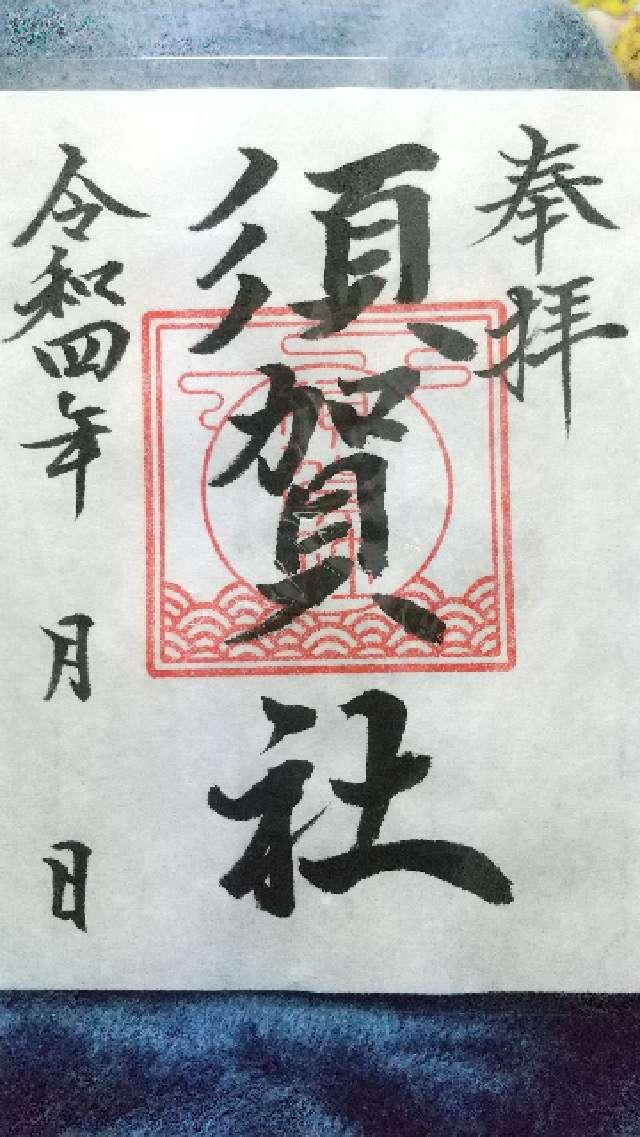 奉拝
須賀社
令和四年 月 日